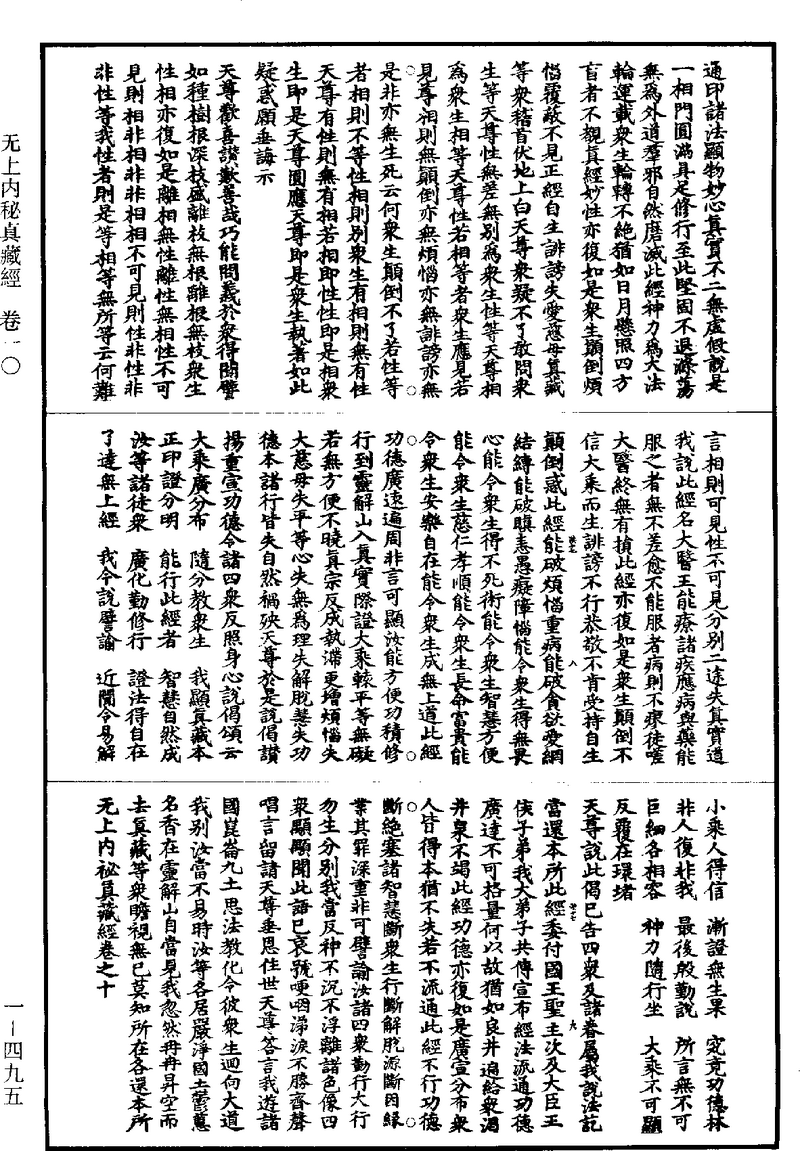 通印諸法顯物妙心真實不二無虛假說是
一相門圓滿具足修行至此堅固不退滌蕩
無為外道羣邪自然磨滅此經神力為大法
輪運載眾生輪轉不絕猶如日月懸照四方
盲者不覩真經妙性亦復如是眾生顛倒煩
惱覆蔽不見正經自生誹謗失愛慈母真藏
等眾稽首伏地上白天尊眾疑不了敢問眾
生等天尊性無差無別為眾生性等天尊相
為眾生相等天尊性若相等者眾生應見若
見尊相則無顛倒亦無煩惱亦無誹謗亦無
是非亦無生死云何眾生顛倒不了若性等
者相則不等性相則別眾生有相則無有性
天尊有性則無有相若相即性性即是相眾
生即是天尊圓應天尊即是眾生執著如此
疑惑願垂誨示
天尊歡喜讚歎善哉巧能問義於眾得聞譬
如種樹根深枝盛離枝無根離根無枝眾生
性相亦復如是離相無性離性無相性不可
見則相非相非非相相不可見則性非性非
非性等我性者則是等相等無所等云何難
言相則可見性不可見分別二途失真實道
我說此經名大醫王能療諸疾應病與藥能
服之者無不差愈不能服者病則不瘳徒嗟
大醫終無損此經亦復如是眾生顛倒不
信大乘而生誹謗不行恭敬不肯受持自生
顛倒惑此經能破煩惱重病能破貪欲愛網
結縛能破瞋恚愚癡障惱能令眾生得無畏
心能令眾生得不死術能令眾生智慧方便
能令眾生慈仁孝順能令眾生長命富貴能
令眾生安樂自在能令眾生成無上道此經
功德廣遠遍周非言可顯汝能方便功積修
行到靈解山入真實際證大乘轅平等無礙
若無方便不曉真宗反成執滯更增煩惱失
大慈母失平等心失無為理失解脫慧失功
德本諸行皆失自然禍殃天尊於是說偈讚
揚重宣功德令諸四眾反照身心說偈頌云
大乘廣分布 隨分教眾生 我顯真藏本
正印證分明 能行此經者 智慧自然成
汝等諸徒眾 廣化勤修行 證法得自在
了達無上經 我今說譬諭 近聞令易解
小乘人得信 漸證無生果 究竟功德林
非人復非我 最後殷勤說 所言無不可
巨細各相容 神力隨行坐 大乘不可顯
反覆在環堵
天尊說此偈已告四眾及諸眷屬我說法記
當還本所此經委付國王聖主次及大臣王
侯子弟我大弟子共傳宣布經法流通功德
廣達不可格量何以故猶如良井遍給眾渴
井泉不竭此經功德亦復如是廣宣分布眾
人皆得本猶不失若不流通此經不行功德
斷絕塞諸智慧斷眾生行斷解脫源斷因緣
業其罪深重非可譬諭汝諸四眾勤行大行
勿生分別我當反神不沉不浮離諸色像四
眾顒顒聞此語已哀號哽咽涕淚不勝齊聲
唱言留請天尊垂恩住世天尊答言我遊諸
國崑崙九土思法教化令彼眾生迴向大道
我別汝當不易時汝等各居嚴淨國土鬱蔥
名香在靈解山自當見我忽然冉冉昇空而
去真藏等眾瞻視無已莫知所在各還本所
无上內祕真藏經卷之十
无上內秘真藏經 卷一〇
一-四九五